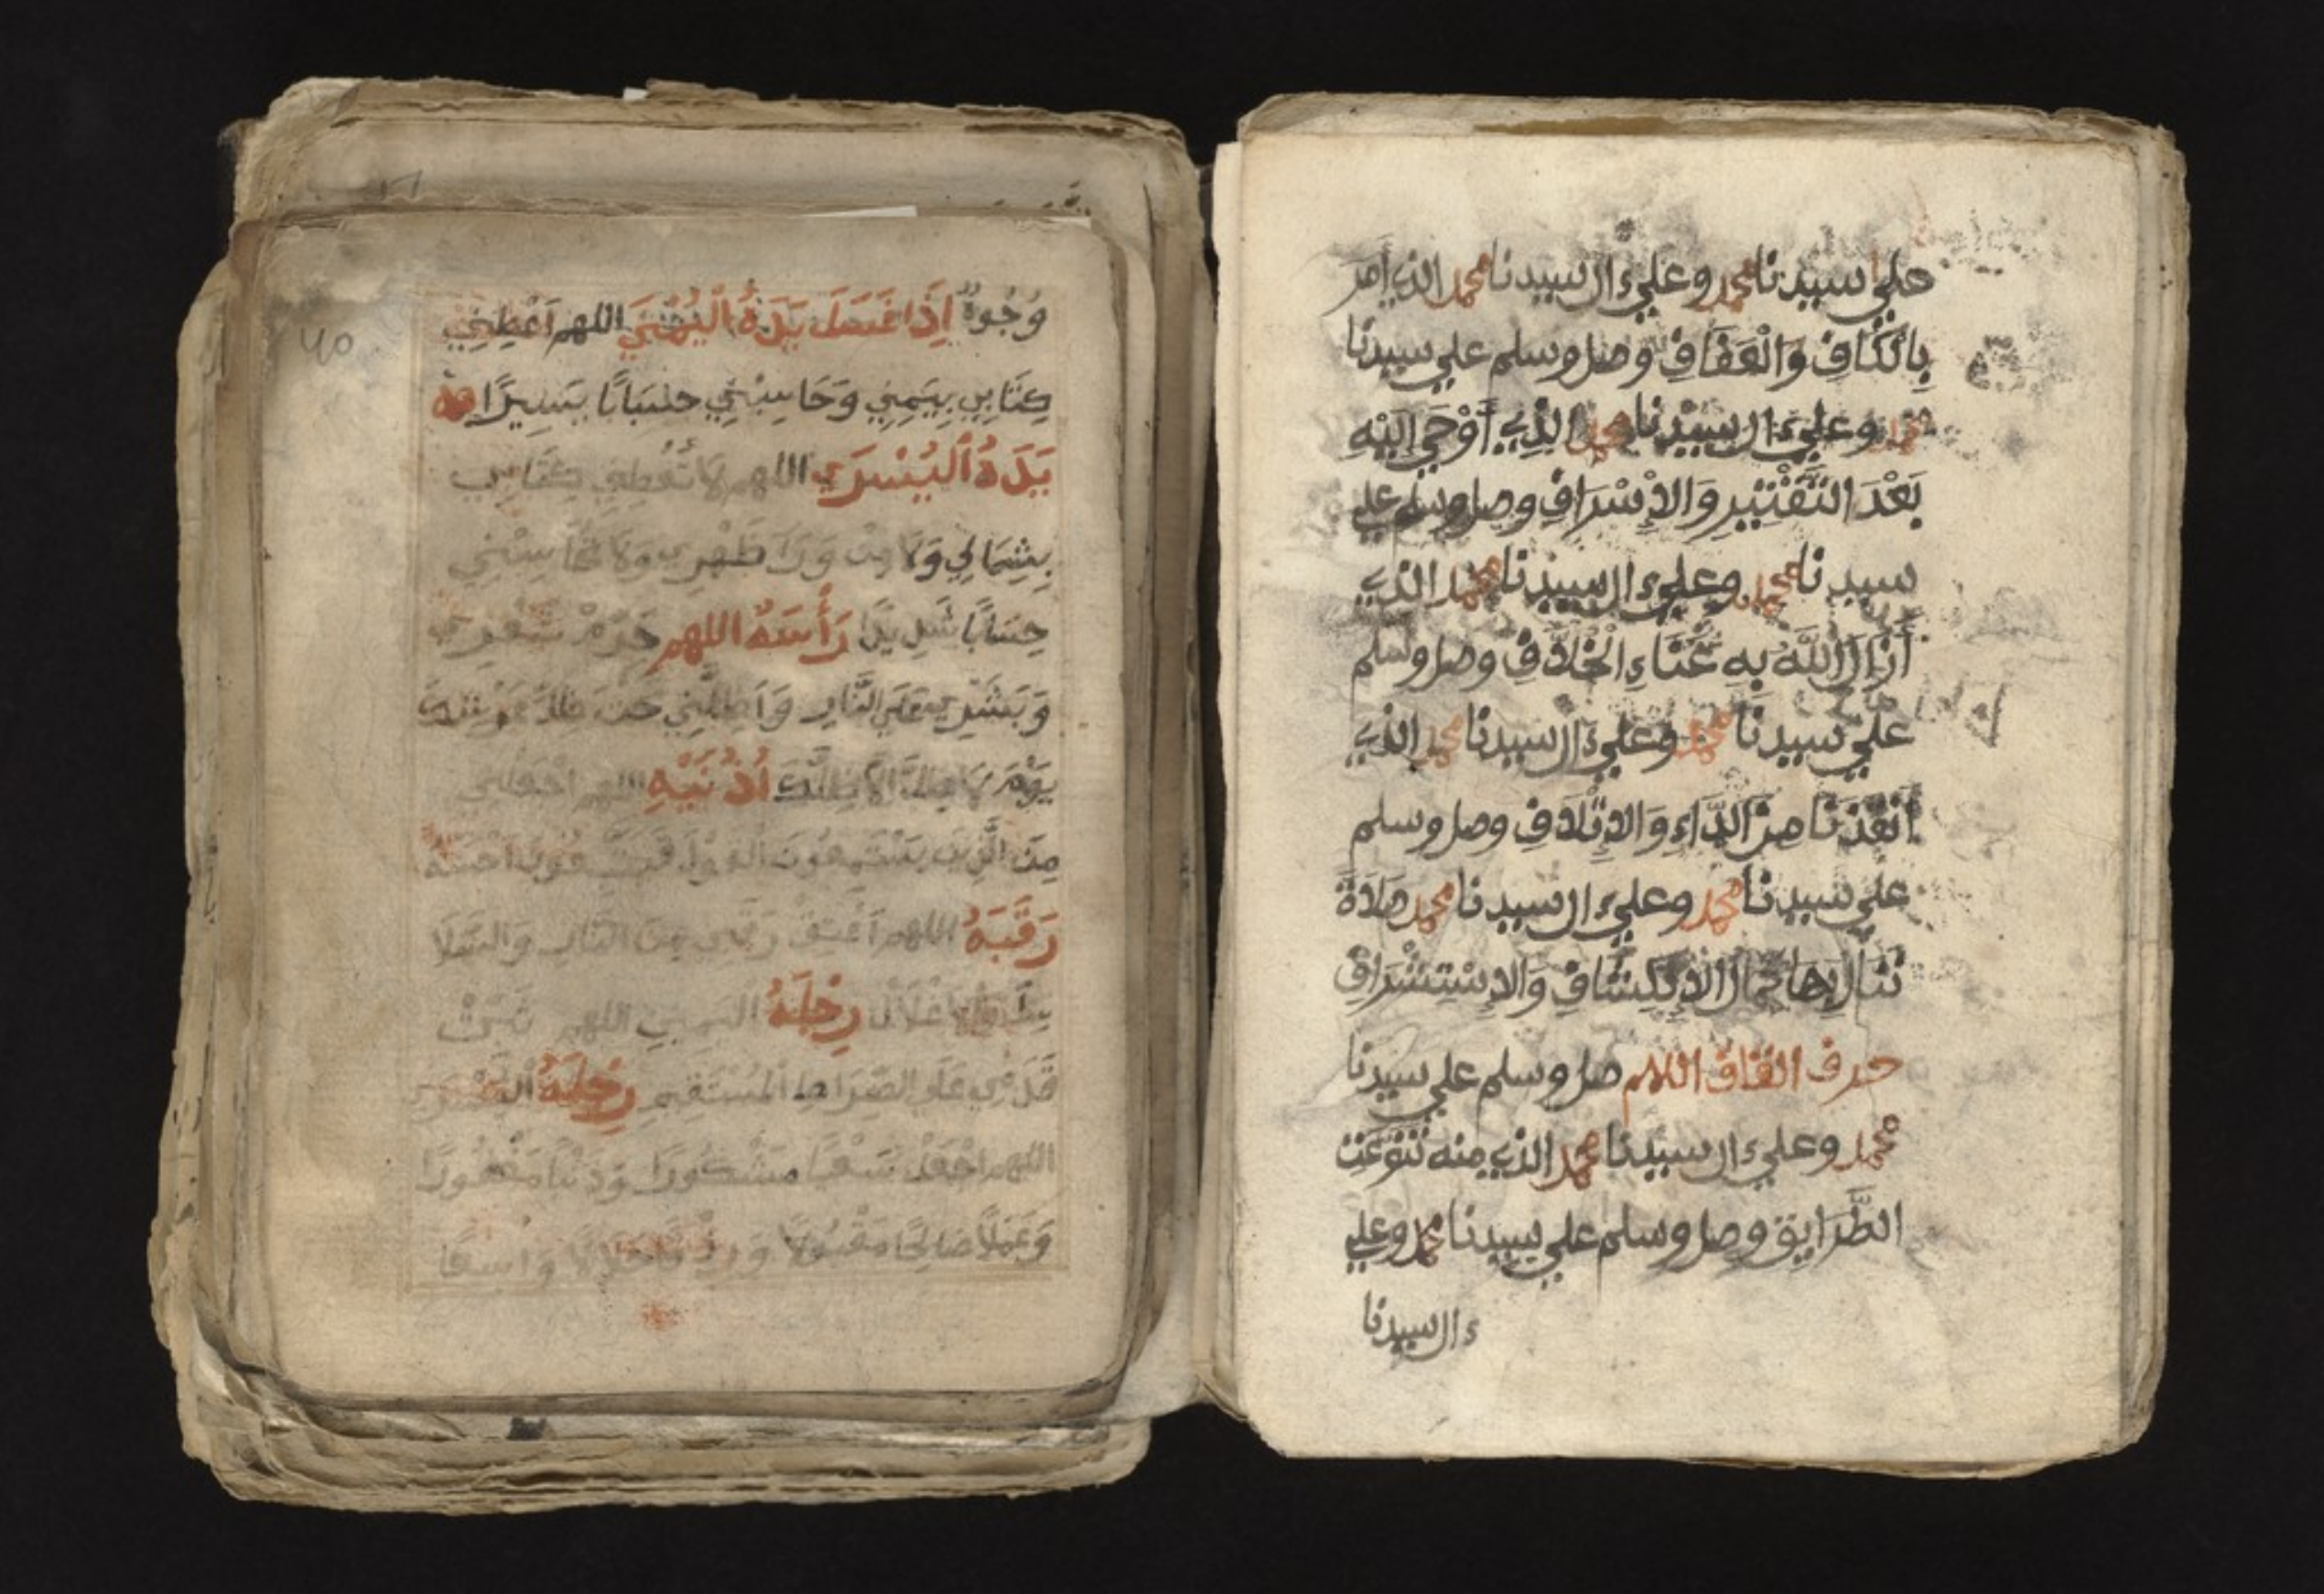 علي سيدنا محمد وعلي ءال سيدنا محمد الذي امر
بِالْكَفَافِ وَالْعَفَافِ وصل وسلم علي سيدنا
محمد وعلي ءال سيدنا محمد الذي أَوْحَي اليْهِ
بَعْدَ التَّقْتِيرِ وَالاِسْرَافِ وصل وسلم علي
سيدنا محمد وعلي ءال سيدنا محمد الذي
أَزَالَ اللَّهُ بِهِ عَنَّاءِ الْخْلَافِ وصل وسلم
علي سيدنا محمد وعلي ءال سيدنا محمد الذي
أَنْقَذَنَا مِنَ الدَّاءِ وَالاِتْلَافِ وصل وسلم
علي سيدنا محمد وعلي ءال سيدنا محمد صَلَاةً
نَنَالُ بِهَا كَمَالَ الاِنْكِشَافِ وَالاِسْتِشْرَافِ
حرف القاف اللهم صل وسلم علي سيدنا
محمد وعلي ءال سيدنا محمد الذي منه تَنَوَّعَت
الطَّرَايِق وصل وسلم علي سيدنا محمد وعلي
ءال سيدنا
وُجُوهٌ إِذَا غَسَلَ يَدَهُ الْيُمْنَي اللهم اَعْطِنِي
كِتَابِي بِيَمِنِي وَحَاسِبْنِي حِسَابًا يَسِيرًا
يَدَهُ الْيُسْرَي اللهم لَا تُعْطِنِي كِتَابِي
بِشِمَالِي وَلَا مِنْ وَرَآءِ ظَهْرِي وَلَا تُحَاسِبْنِي
حِسَابًا شَدِيدًا رَأْسَهُ اللهم حَرِّمْ شَعْرِي
وَبَشَرِي عَلَي النَّارِ وَاَظِلَّنِي تحت ظِلِّ عَرْشِكَ
يَوْمَ لَا ظِلَّ الَّا ظِلُّكَ اُذْنَيْهِ اللهم اجْعَلْنِي
مِنَ الَّذِينَ يَسْتَمِعُونَ الْقَوْلَ فَيَتَّبِعُونَ اَحْسَنَهُ
رَقَبَهُ اللهم اَعْتِقْ رَقَبَتِي مِنَ النَّارِ وَالسَّلَا
سِلِ وَالْاَغْلَالِ رِجْلَهُ اليمني اللهم ثَبِّتْ
قَدَمِي عَلَي الصِّرَاطِ الْمُسْتَقِيمِ رِجْلَهُ الْيُسْرَي
اللهم اجْعَلْ سَعْيًا مَشْكُورًا وَذَنْبًا مَغْفُورًا
وَعَمَلًا صَالِحًا مَقْبُولًا وَرِزْقًا حَلَالًا وَاسِعًا